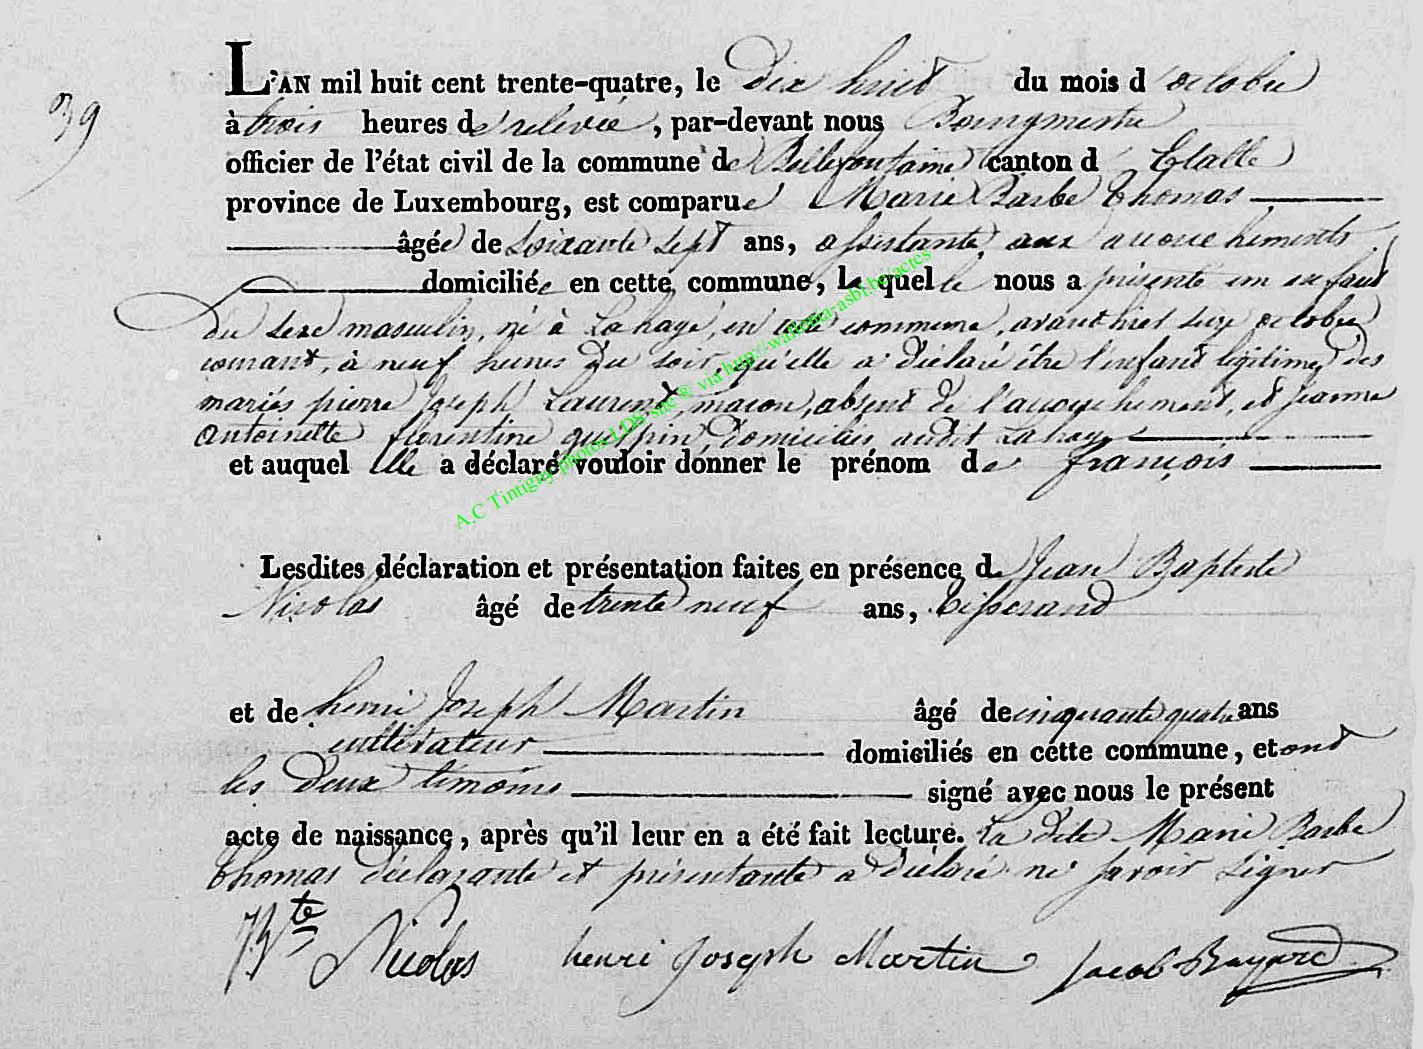 39
L'AN mil huit cent trente-quatre, le dix huit du mois d'octobre
à trois heures de relevée, par-devant nous Bourgmestre
officier de l'état civil de la commune de Bellefontaine canton d'Etalle
province de Luxembourg, est comparue Marie Barbe Thomas
âgée de soixante sept ans, assistante aux accouchements
domiciliée en cette commune, la quelle nous a présenté un enfant
du sexe masculin, né à Lahage, en cette commune, avant hier seize octobre
courant, à neuf heures du soir, qu'elle a déclaré être l'enfant légitime des
mariés pierre Joseph Laurent, macon, absent de l'accouchement, et jeanne
antoinette florentine guespin, domiciliés audit Lahage
et auquel elle a déclaré vouloir donner le prénom de françois
A.C Tintigny photos LDS site ® via http://wallonia-asbl.be/actes
Lesdites déclaration et présentation faites en présence de Jean Baptiste
Nicolas âgé de trente neuf ans, tisserand
et de henri Joseph Martin âgé de cinquante quatre ans
cultivateur domiciliés en cette commune, et ont
les deux témoins signé avec nous le présent
acte de naissance, après qu'il leur en a été fait lecture. La dite Marie Barbe
Thomas déclarante et présentante a déclaré ne savoir signer
Bte Nicolas henri Joseph Martin Jacob Bayard